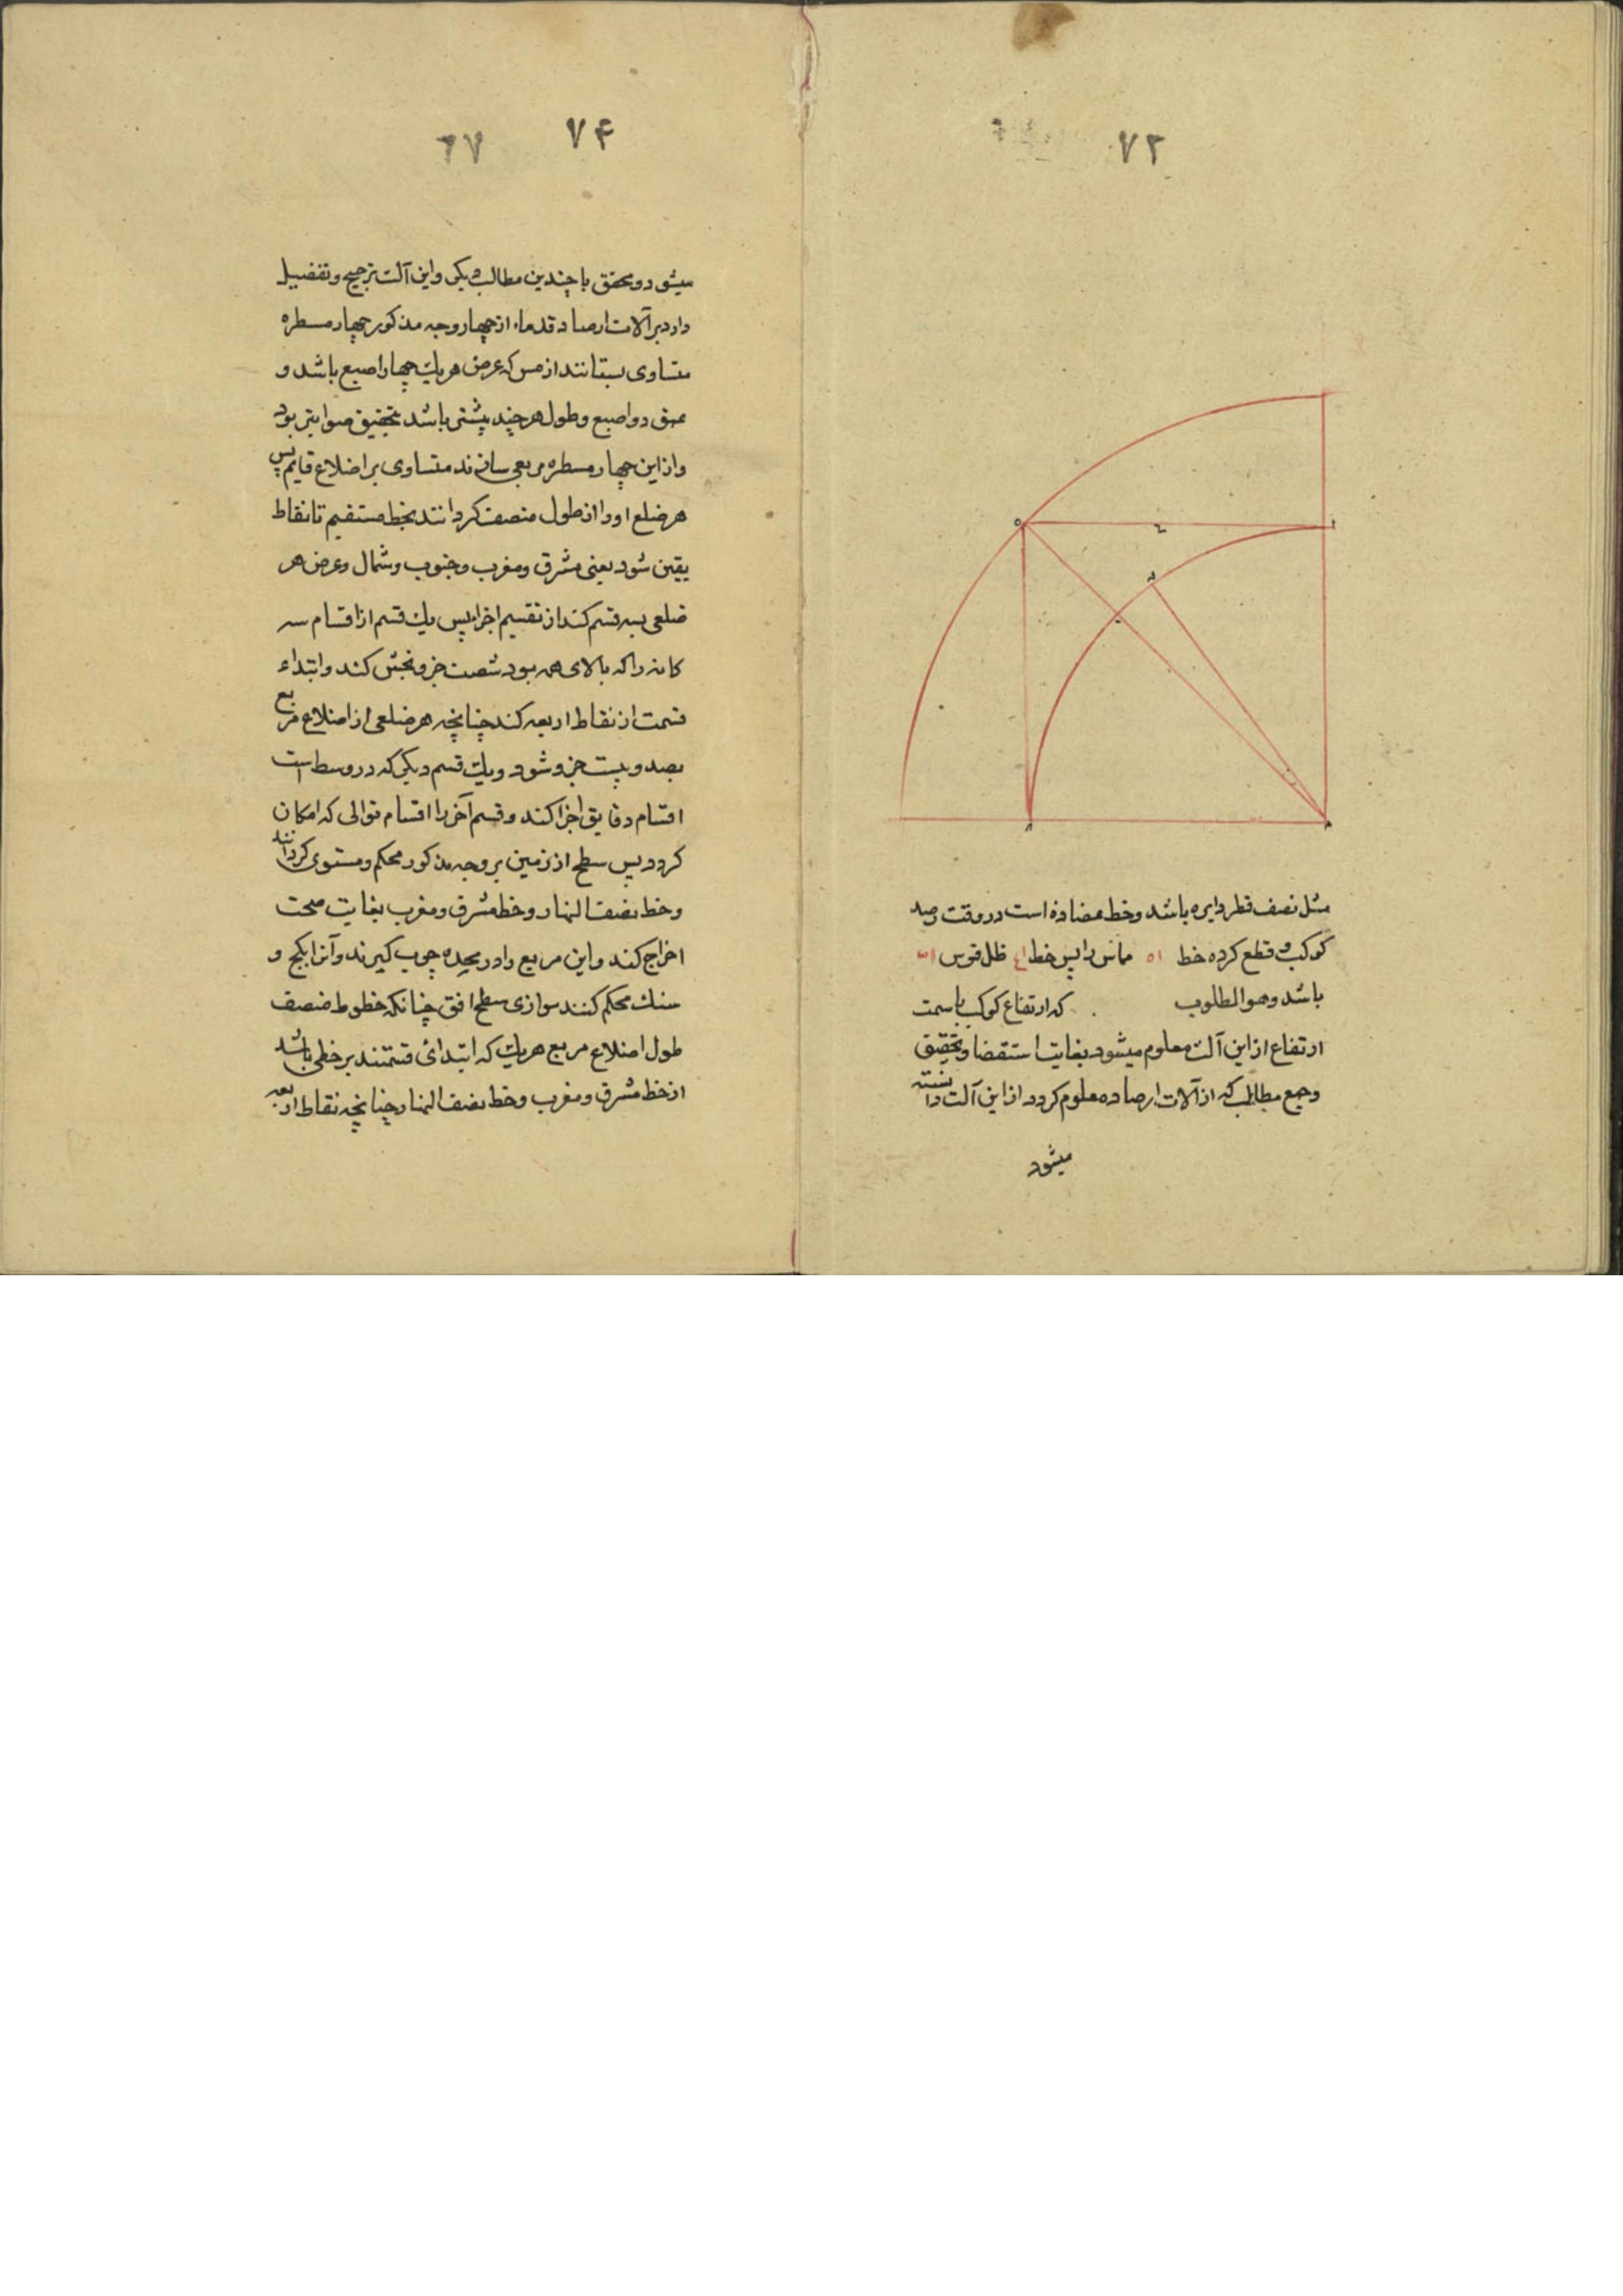 ۷۳
مثل نصف قطر دایره باشد وخط عضاده است در وقت رصد
کوکب و قطع کرده خط ا ه مماس را پس خط ظل قوس
باشد وهو المطلوب . که ارتفاع کوکب با سمت
ارتفاع از این آلت معلوم میشود بغایت استقضا وتحقیق
وجمع مطالب که از آلات ارصاد معلوم کردد از این آلت دانسته
میشود
۷۴ ۶۷
میشود ومحقق با چندین مطالب دیکر واین آلت ترجیح وتفضیل
دارد بر آلات ارصاد قدماء از چهار وجه مذکور چهار مسطره
متساوی بستانند از مس که عرض هریك چهار اصبع باشد و
عمق دو اصبع وطول هر چند بیشتر باشد بتحقیق صوابتر بود
واز این چهار مسطره مربعی سازند متساوی بر اضلاع قایم پس
هر ضلع اورا از طول منصف کردانند بخط مستقیم تا نقاط
یقین شود یعنی مشرق ومغرب وجنوب وشمال وعرض هر
ضلعی بسه قسم کند از تقسیم اجزا پس یك قسم از اقسام سه
کانه را که بالای همه بود شصت جزو بخش کند وابتداء
قسمت از نقاط اربعه کند چنانچه هر ضلعی از اضلاع مربع
بصد وبیست جزو شود ویك قسم دیکر که در وسط است
اقسام دقایق اجزا کند وقسم آخر را اقسام توالی که امکان
کردد پس سطح از زمین بر وجه مذکور محکم ومستوی کردانند
وخط نصف النهار وخط مشرق ومغرب بغایت صحت
اخراج کند واین مربع را در چوب کیرند وآنرا بکچ و
سنك محکم کنند موازی سطح افق چنانکه خطوط منصف
طول اضلاع مربع هریك که ابتدای قسمتند بر خطی باشد
از خط مشرق ومغرب وخط نصف النهار چنانچه نقاط اربعه